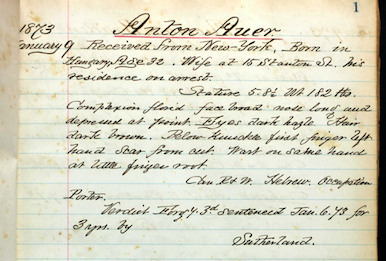 1
Anton Auer
1873
nuary 9 Received from New-York, Born in
Hungary, Age 32. Wife at 15 Stanton St. his
residence on arrest.
Stature 5.8½ Wt 182 lbs.
Complexion florid face broad nose long and
depressed at point. Eyes dark hazle. Hair
dark brown. Below knuckle first finger left
hand scar from cut. Wart on same hand
at little finger root.
Can R & W. Hebrew. Occupation
Porter.
Verdict Burgy. 3.d sentenced Jan. 6. 73 for
3 yrs. by
Sutherland.